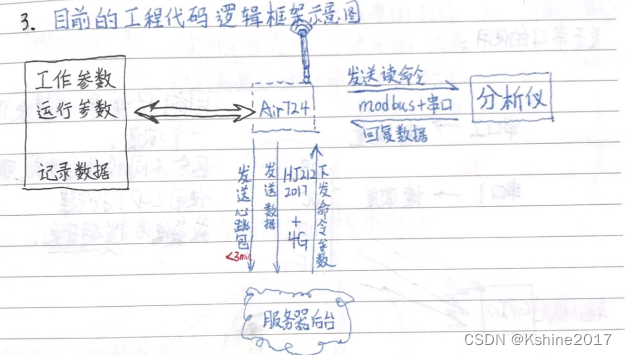 3. 目前的工程代码逻辑框架示意图
工作参数
运行参数
记录数据
Air724
发送读命令
modbus+串口
回复数据
分析仪
发送心跳包
<3min
发送数据
HJ212
2017
+
4G
下发命令参数
服务器后台
CSDN @Kshine2017